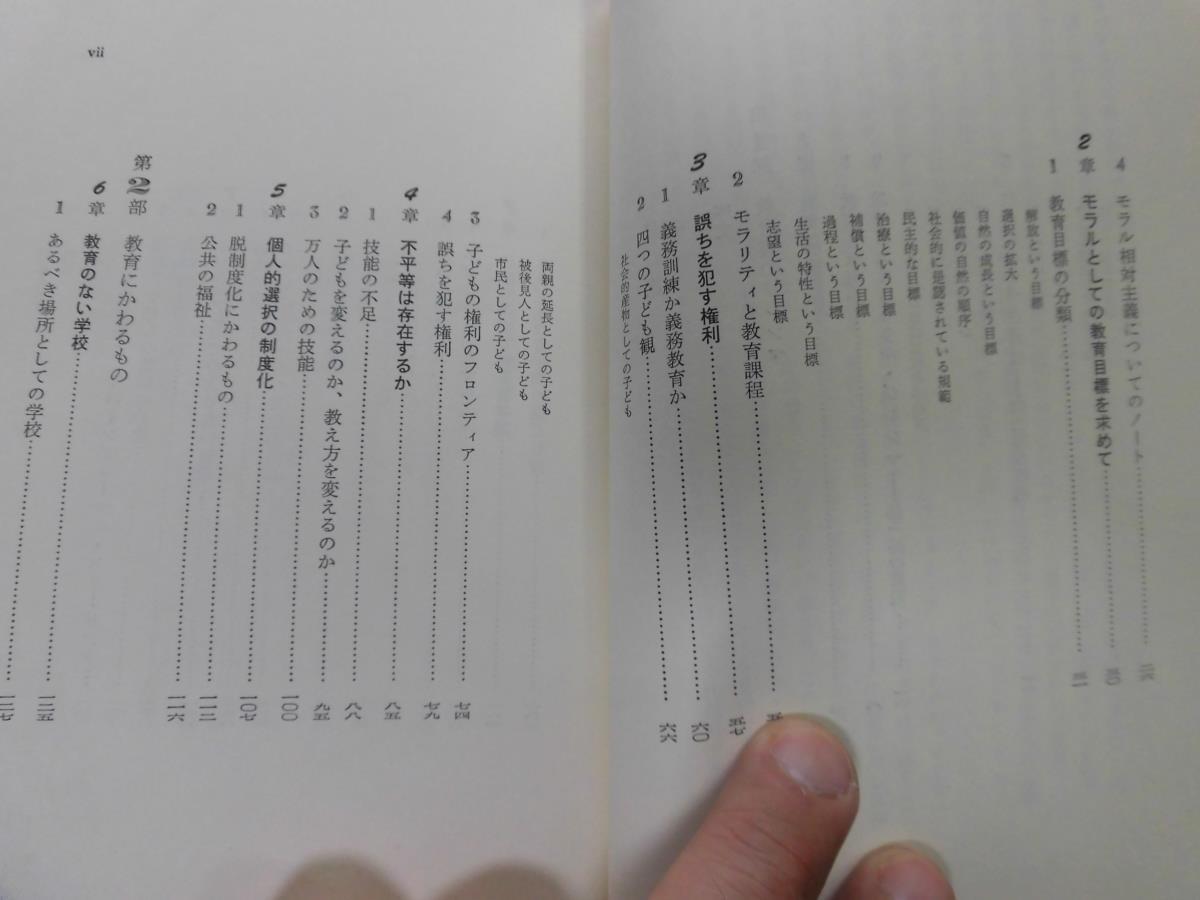 4 モラル相対主義についてのノート……二六
2章 モラルとしての教育目標を求めて……三〇
1 教育目標の分類……三一
解放という目標
選択の拡大
自然の成長という目標
価値の自然の順序
社会的に是認されている規範
民主的な目標
治療という目標
補償という目標
過程という目標
生活の特性という目標
志望という目標
2 モラリティと教育課程……
3章 誤ちを犯す権利……五七
1 義務訓練か義務教育か……六〇
2 四つの子ども観……六六
社会的産物としての子ども
vii
両親の延長としての子ども
被後見人としての子ども
市民としての子ども
3 子どもの権利のフロンティア……七四
4 誤ちを犯す権利……七九
4章 不平等は存在するか……八五
1 技能の不足……八八
2 子どもを変えるのか、教え方を変えるのか……九五
3 万人のための技能……一〇〇
5章 個人的選択の制度化……一〇七
1 脱制度化にかわるもの……一一二
2 公共の福祉……一一六
第2部 教育にかわるもの
6章 教育のない学校……一二五
1 あるべき場所としての学校……一二七